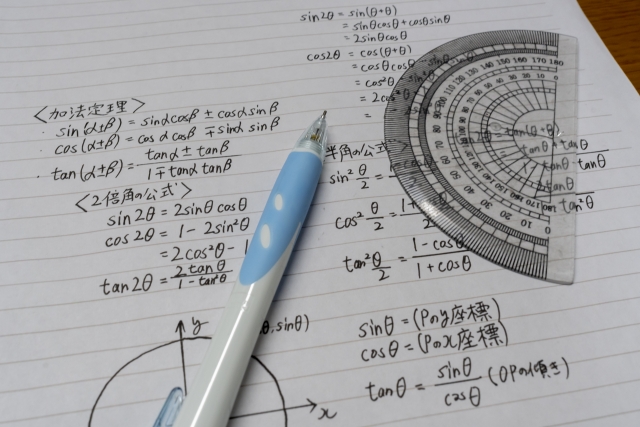 sin2θ = sin(θ+θ)
= sinθcosθ + cosθsinθ
= 2sinθcosθ
cos2θ = cos(θ+θ)
= cosθcosθ - sinθ
= cos²θ - sin²θ
= 2cos²θ
=
<加法定理>
・sin(α±β) = sinαcosβ ± cosαsinβ
・cos(α±β) = cosαcosβ ∓ sinα sinβ
・tan(α±β) = tanα ± tanβ / 1 ∓ tanα tanβ
<2倍角の公式>
sin2θ = 2sinθ cosθ
cos2θ = 1 - 2sin²θ
= 2cos²θ - 1
tan2θ = 2tanθ / 1 - tan²θ
半角の公式
sin² θ/2 =
cos² θ/2 = 1+
tan² θ/2 = 1 - cosθ / 1 + cosθ
tan(θ+θ)
tanθ + tanθ
tanθ tanθ
tanθ
tan²θ
180 170 160 150 140 130 120
0 10 20 30
y
θ, sinθ)
x
sinθ = (Pのy座標)
cosθ = (Pのx座標)
tanθ = sinθ / cosθ (OPの傾き)